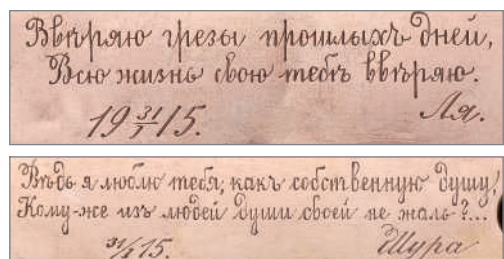 Ввѣряю грезы прошлыхъ дней,
Всю жизнь свою тебѣ ввѣряю.
19 31/I 15. Ля.
Вѣдь я люблю тебя, какъ собственную душу
Кому-же изъ людей души своей не жаль?...
31/I 15. Шура